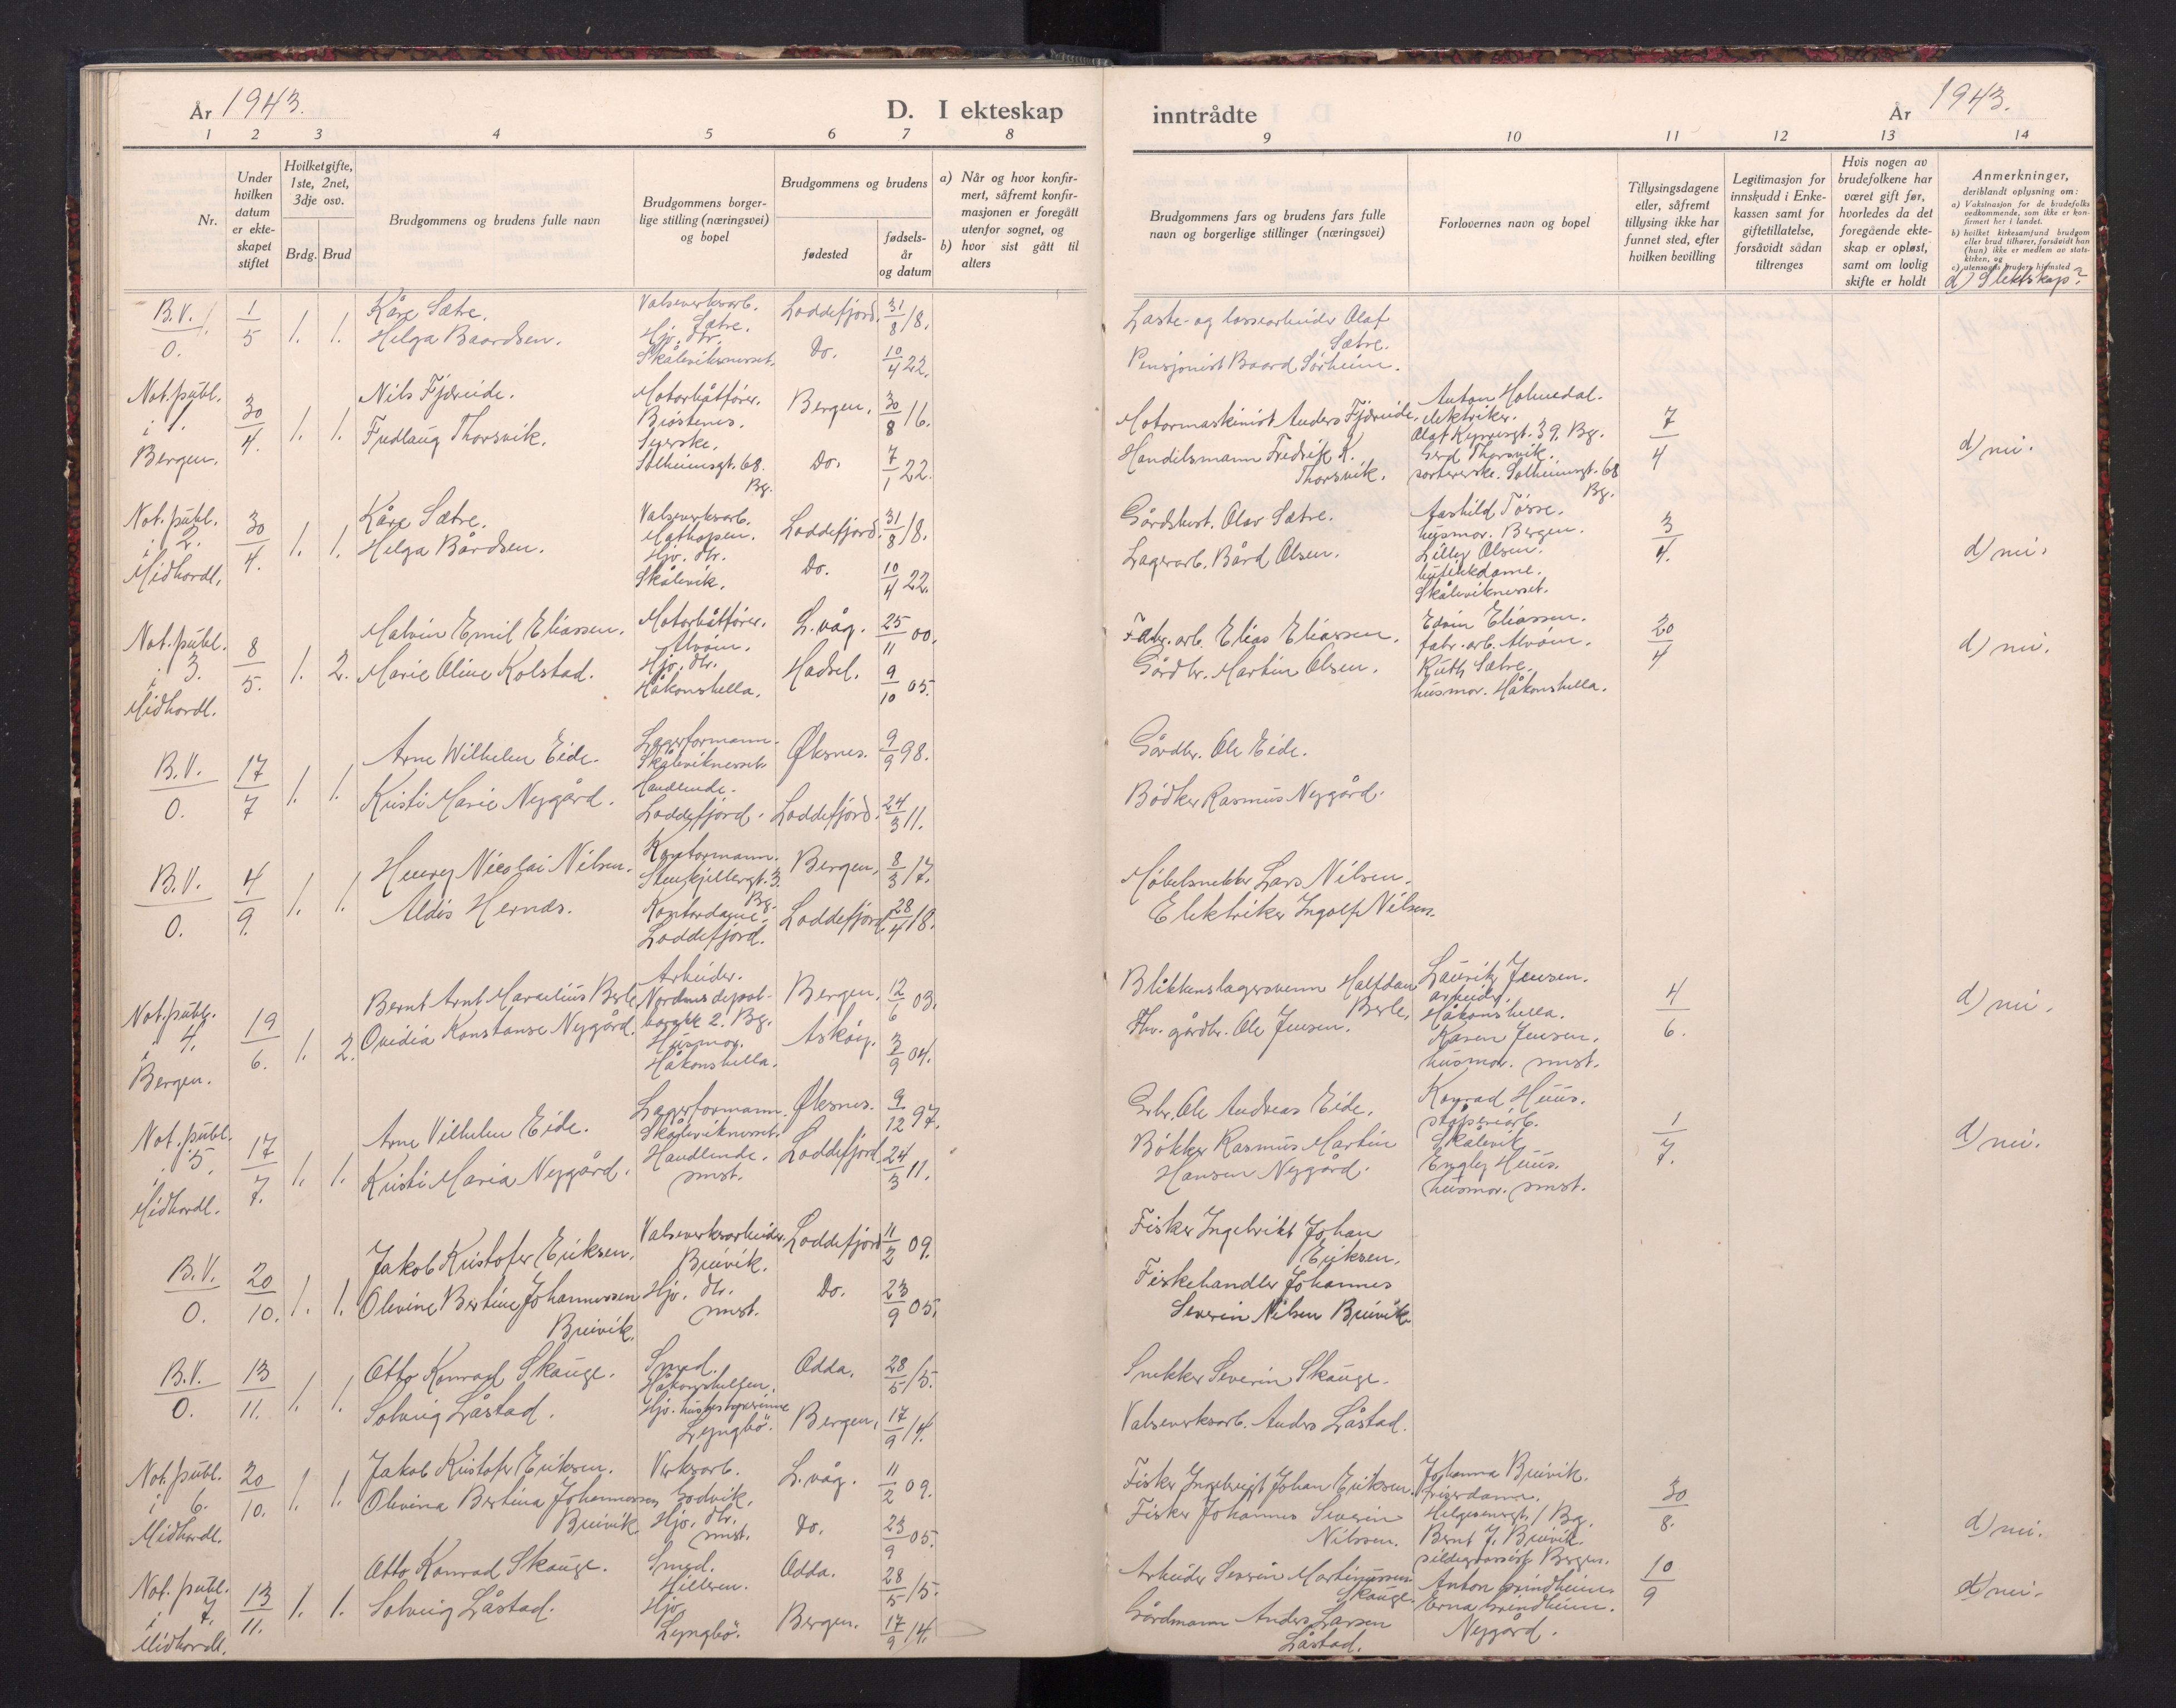 År 1943.
D. I ekteskap
1 2 3 4 5 6 7 8
Nr.
Under hvilken datum er ekteskapet stiftet
Hvilket gifte, 1ste, 2net, 3dje osv.
Brdg. Brud
Brudgommens og brudens fulle navn
Brudgommens borgerlige stilling (næringsvei) og bopel
Brudgommens og brudens
fødested
fødselsår og datum
a) Når og hvor konfirmert, såfremt konfirmasjonen er foregått utenfor sognet, og
b) hvor sist gått til alters
B.V. 1. 1/5 1. 1. Kåre Sætre. Valseverksarb. Sætre. Loddefjord. 31/8 18.
0. Helga Baardsen. Hjv. dtr. Skåleviksnesset. Do. 10/4 22.
Not. publ. i 1. Bergen. 30/4. 1. 1. Nils Fjæreide. Motorbåtfører. Brøstenes. Bergen. 30/8 16.
Thorsvik. Syerske. Solheimsgt. 68. Bg. Do. 7/1 22.
Not. publ. i 2. Midhordl. 30/4. 1. 1. Kåre Sætre. Valseverksarb. Mathopen. Loddefjord. 31/8 18.
Helga Bårdsen. Hjv. dtr. Skålevik. Do. 10/4 22.
Not. publ. i 3. Midhordl. 8/5. 1. 2. Malvin Emil Eliassen. Motorbåtfører. Alvøin. L.våg. 25/11 00.
Marie Oline Kolstad. Hjv. dtr. Håkonshella. Hadsel. 9/10 05.
B.V. 0. 17/7 1. 1. Arne Wilhelm Eide. Lagerformann. Skåleviknesset. Øksnes. 9/9 98.
Kristi Marie Nygård. Handlende. Loddefjord. Loddefjord. 24/3 11.
B.V. 0. 4/9. 1. 1. Henry Nicolai Nilsen. Kontormann. Stenkjellergt. 3. Bg. Bergen. 8/3 17.
Aldis Hernæs. Kontordame. Loddefjord. Loddefjord 28/4 18.
Not. publ. i 4. Bergen. 19/6. 1. 2. Bernt Arnt Marcelius Berle Arbeider. Nordnes depot-barakk 2. Bg. Bergen. 12/6 03.
Ovidia Konstanse Nygård. Husmor. Håkonshella. Askøy. 3/9 04.
Not. publ. i 5. Midhordl. 17/7. 1. 1. Arne Vilhelm Eide. Lagerformann. Skåleviknesset. Øksnes. 9/12 97.
Kristi Maria Nygård. Handlende. smst. Loddefjord. 24/3 11.
B.V. 0. 20/10. 1. 1. Jakob Kristofer Eriksen. Valseverksarbeider. Breivik. Loddefjord 11/2 09.
Olevine Bertine Johannessen Breivik. Hjv. dtr. smst. Do. 23/9 05.
B.V. 0. 13/11. 1. 1. Otto Konrad Skauge. Smed. Håkonshellen. Odda. 28/5 15.
Solveig Låstad. Hjv. husbestyrerinne Lyngbö. Bergen. 17/9 14.
Not. publ. i 6. Midhordl. 20/10. 1. 1. Jakob Kristofer Eriksen. Verksarb. Godvik. L.våg. 11/2 09.
Olevina Bertina Johannessen Breivik Hjv. dtr. smst. Do. 23/9 05.
Not. publ. i 7. Midhordl. 13/11. 1. 1. Otto Konrad Skauge. Smed. Hilleren. Odda. 28/5 15.
Solveig Låstad. Hjv. Lyngbö. Bergen. 17/9 14.
inntrådte
År 1943.
9 10 11 12 13 14
Brudgommens fars og brudens fars fulle navn og borgerlige stillinger (næringsvei)
Forlovernes navn og bopel
Tillysingsdagene eller, såfremt tillysing ikke har funnet sted, efter hvilken bevilling
Legitimasjon for innskudd i Enkekassen samt for giftetillatelse, forsåvidt sådan tiltrenges
Hvis nogen av brudefolkene har været gift før, hvorledes da det foregående ekteskap er opløst, samt om lovlig skifte er holdt
Anmerkninger,
deriblandt oplysning om:
a) Vaksinasjon for de brudefolks vedkommende, som ikke er konfirmert her i landet.
b) hvilket kirkesamfund brudgom eller brud tilhører, forsåvidt han (hun) ikke er medlem av statskirken, og
c) utensogns bruders hjemsted
d) Slektskap?
Laste- og lossearbeider Olaf Sætre.
Pensjonist Baard Sørheim.
Motormaskinist Anders Fjæreide. Anton Holmedal. elektriker. Olaf Kyrresgt. 39. Bg. 7/4 d) nei.
Handelsmann Fredrik K. Thorsvik. Gerd Thorsvik. sortererske. Solheimsgt. 68 Bg.
Gårdsbest. Olav Sætre. Aashild Tøsse. husmor. Bergen. 3/4. d) nei.
Lagerarb. Bård Olsen. Lilly Olsen. butikkdame. Skåleviknesset.
Fabr. arb. Elias Eliassen. Edvin Eliassen. fabr. arb. Alvøin. 20/4 d) nei.
Gårdbr. Martin Olsen. Ruth Sætre. husmor. Håkonshella.
Gårdbr. Ole Eide.
Bødker Rasmus Nygård.
Møbelsnekker Lars Nilsen.
Elektriker Ingolf Nilsen.
Blikkenslagersvenn Halfdan Berle. Lauritz Jensen. arbeider. Håkonshella. 4/6. d) nei.
Fhv. gårdbr. Ole Jensen. Karen Jensen. husmor. smst.
Grbr. Ole Andreas Eide. Konrad Huus. støperiarb. Skålevik 1/7. d) nei.
Bøkker Rasmus Martin Hansen Nygård. Engly Huus. husmor. smst.
Fisker Ingebrikt Johan Eriksen.
Fiskehandler Johannes Severin Nilsen Breivik
Snekker Severin Skauge.
Valseverksarb. Anders Låstad.
Fisker Ingebrigt Johan Eriksen. Johanna Breivik. friserdame. Helgesensgt. 1 Bg. 30/8. d) nei.
Fisker Johannes Severin Nilssen. Bernt J. Breivik. sildegrossist Bergen.
Arbeider Severin Martinussen Skauge. Anton Grindheim 10/9 d) nei.
Gårdmann Anders Larsen Låstad. Erna Grindheim. Nygård.